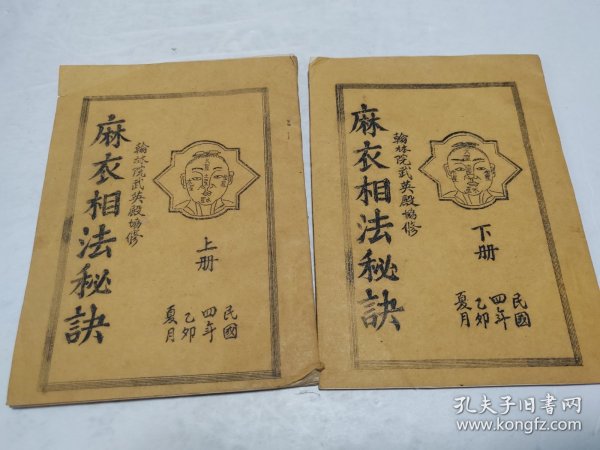 麻衣相法秘訣
翰林院武英殿協修
上册
民國
四年
乙卯
夏月
麻衣相法秘訣
翰林院武英殿協修
下册
民國
四年
乙卯
夏月
孔夫子旧书网
www.kongfz.com